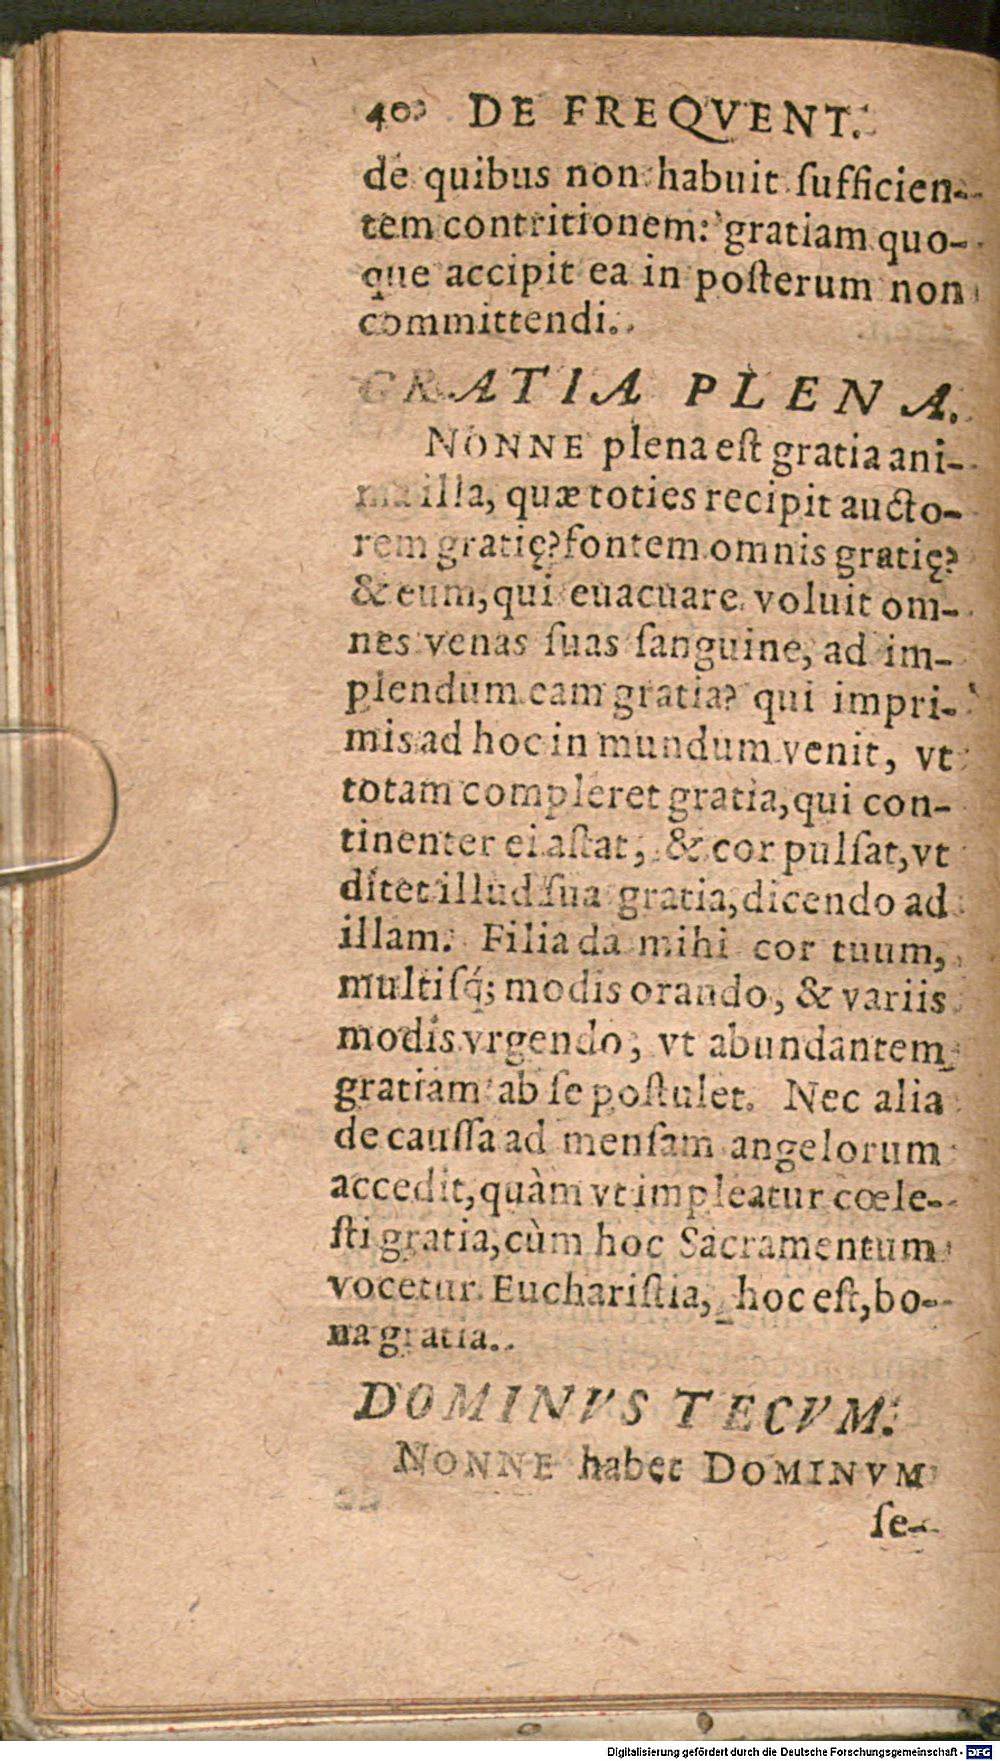 40 DE FREQVENT.
de quibus non habuit ſufficien-
tem contritionem: gratiam quo-
que accipit ea in poſterum non
committendi.
GRATIA PLENA.
NONNE plena eſt gratia ani-
ma illa, quæ toties recipit aucto-
rem gratię? fontem omnis gratię?
& eum, qui euacuare voluit om-
nes venas ſuas ſanguine, ad im-
plendum eam gratia? qui impri-
mis ad hoc in mundum venit, vt
totam compleret gratia, qui con-
tinenter ei aſtat, & cor pulſat, vt
ditet illud ſua gratia, dicendo ad
illam. Filia da mihi cor tuum,
multiſq́; modis orando, & variis
modis vrgendo, vt abundantem
gratiam ab ſe poſtulet. Nec alia
de cauſſa ad menſam angelorum
accedit, quàm vt impleatur cœle-
ſti gratia, cùm hoc Sacramentum
vocetur Euchariſtia, hoc eſt, bo-
na gratia.
DOMINVS TECVM.
NONNE habet DOMINVM
ſe-
Digitalisierung gefördert durch die Deutsche Forschungsgemeinschaft - DFG